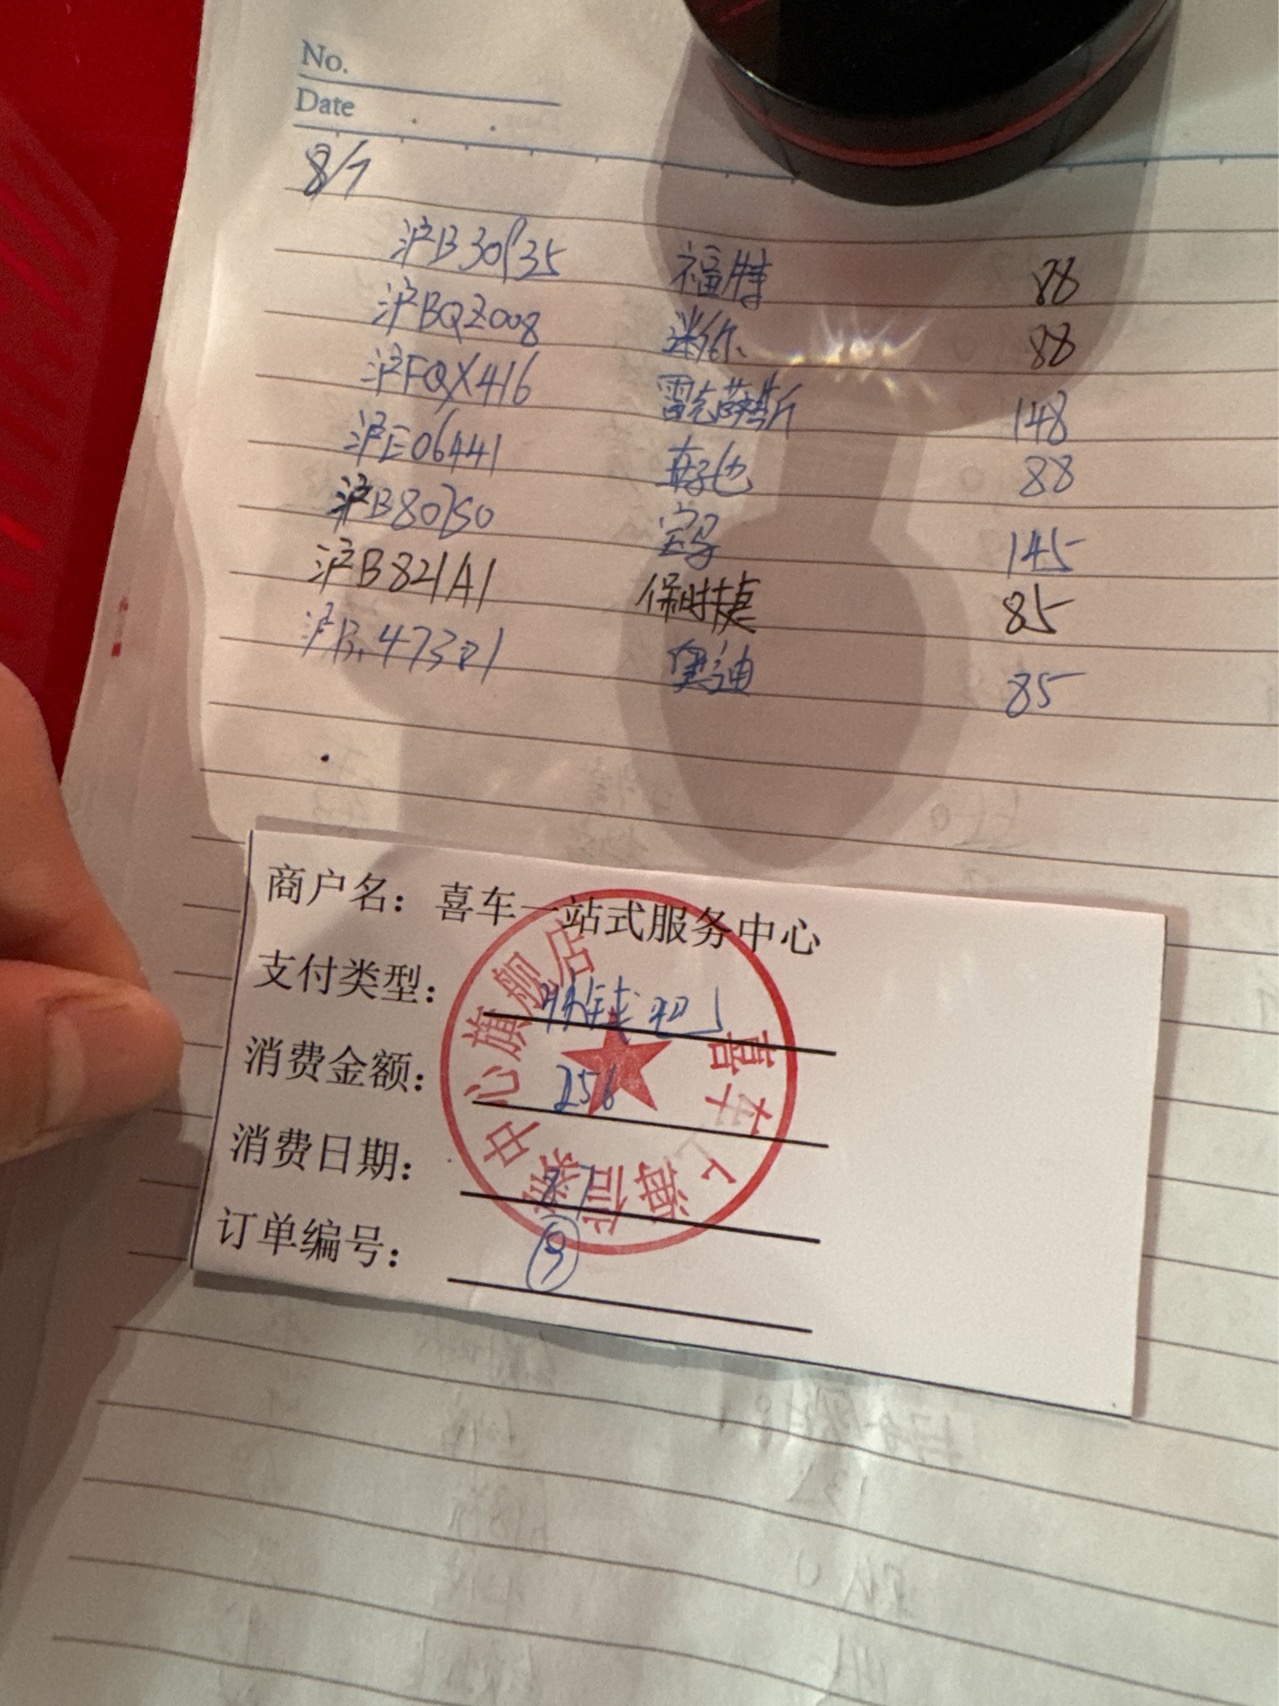 No.
Date
8/7
沪B30P35 福特 88
沪BQZ008 迷你 88
沪FQX416 雷克萨斯 148
沪E06441 88
沪B80750 宝马 145
沪B821A1 保时捷 85
沪B 47321 奥迪 85
商户名：喜车一站式服务中心
支付类型：
消费金额：256
消费日期：
订单编号：
喜车 上海 中心旗舰店